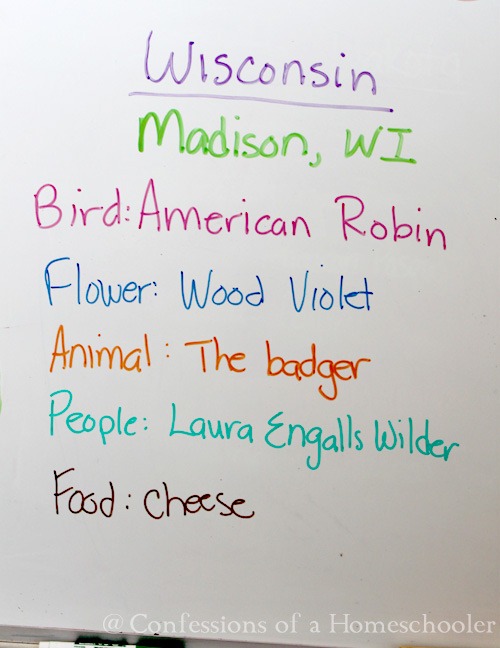 Wisconsin
Madison, WI
Bird: American Robin
Flower: Wood Violet
Animal: The badger
People: Laura Engalls Wilder
Food: Cheese
@ Confessions of a Homeschooler